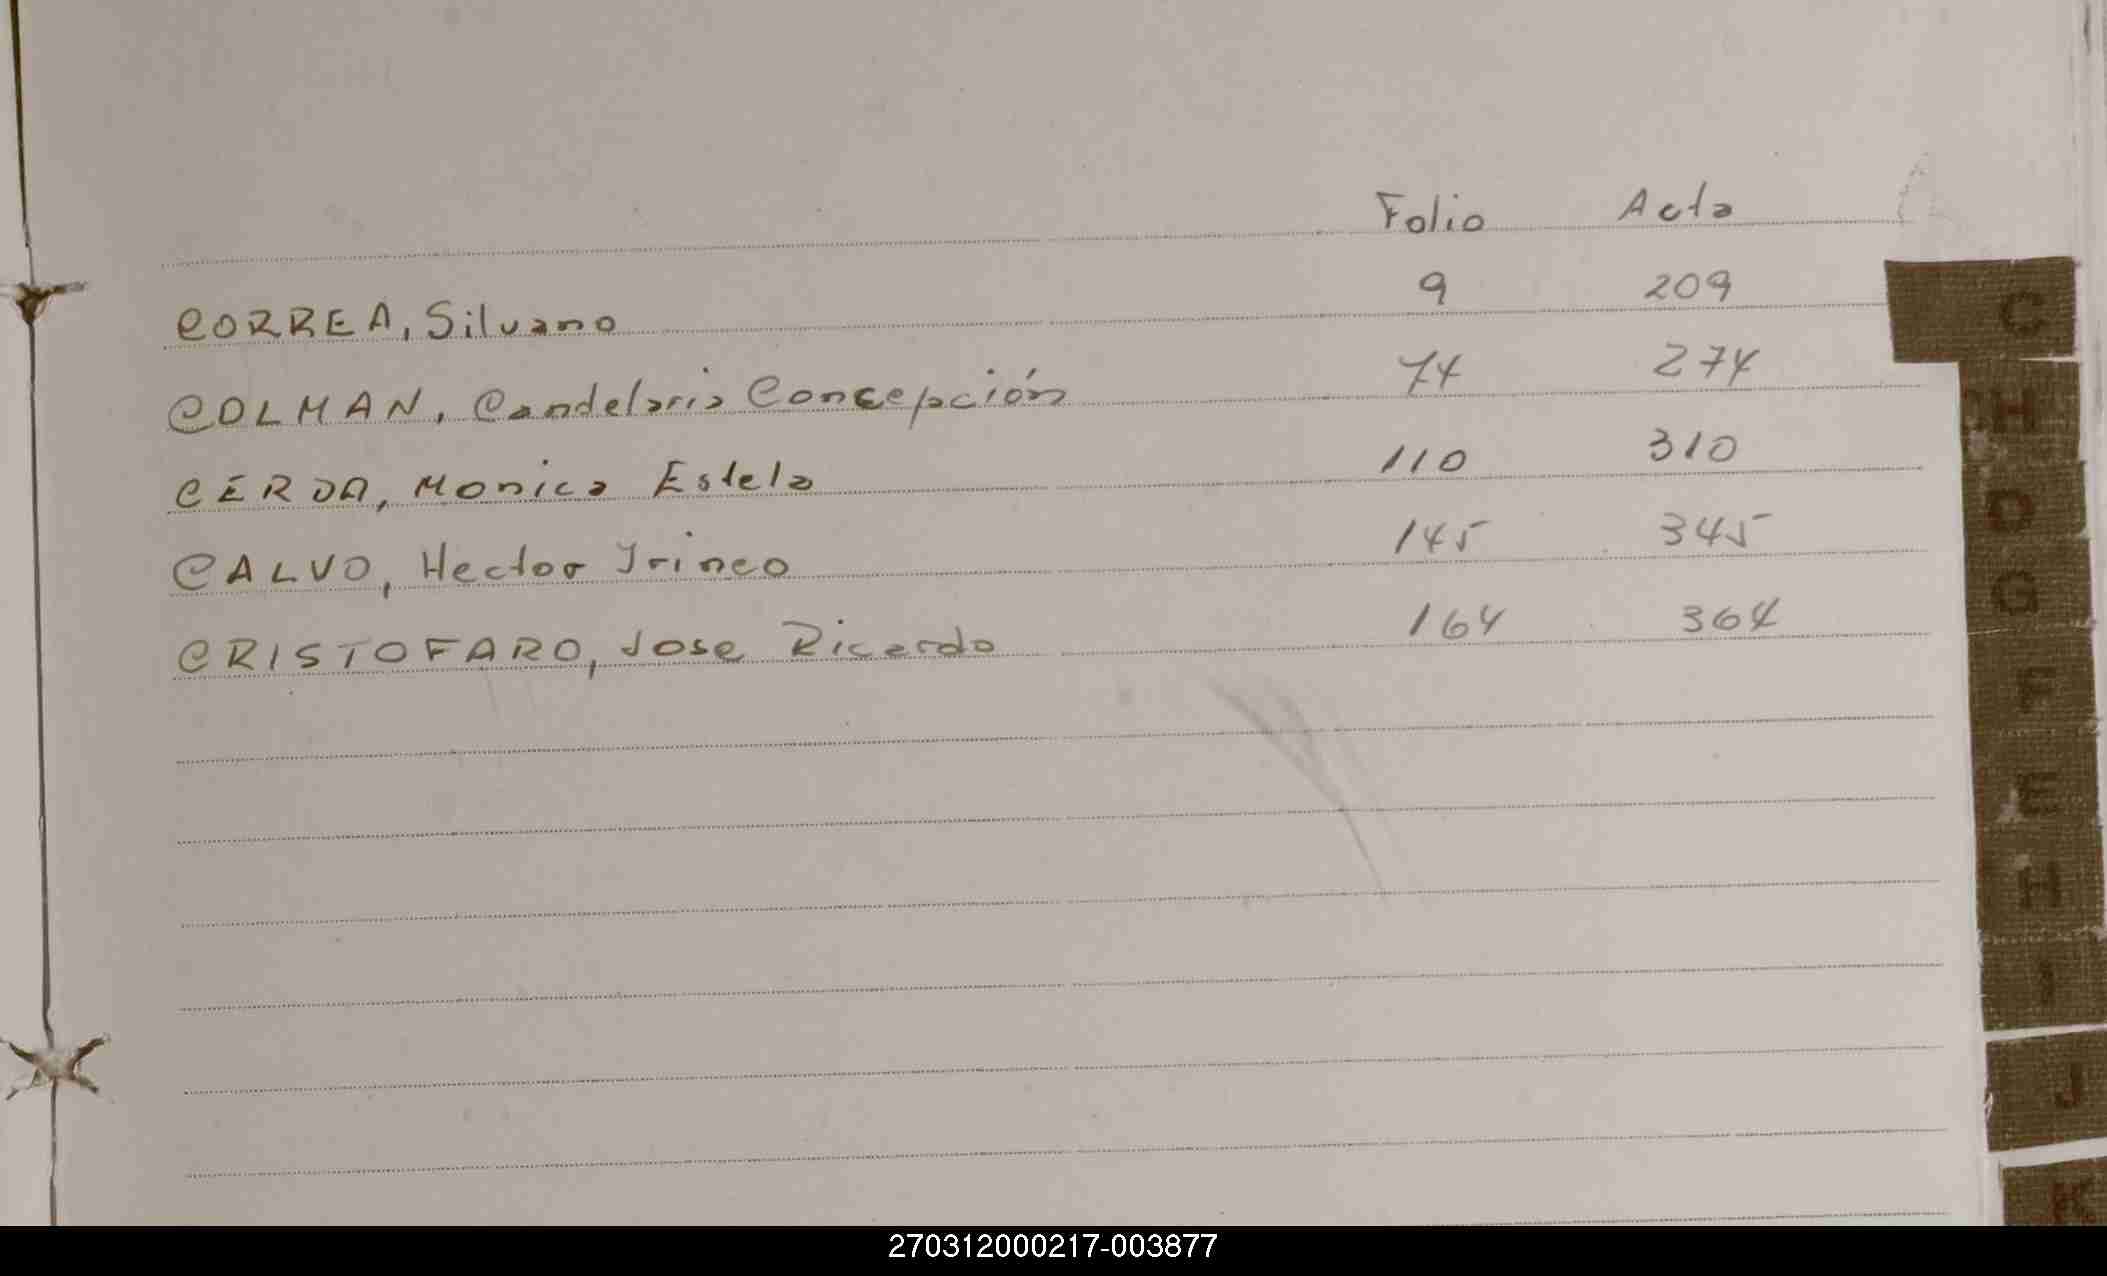 Folio Acta
CORREA, Silvano 9 209
COLMAN, Candelaria Concepción 74 274
CERDA, Monica Estela 110 310
CALVO, Hector Irineo 145 345
CRISTOFARO, Jose Ricardo 164 364
C
H
D
G
F
E
H
I
J
K
270312000217-003877